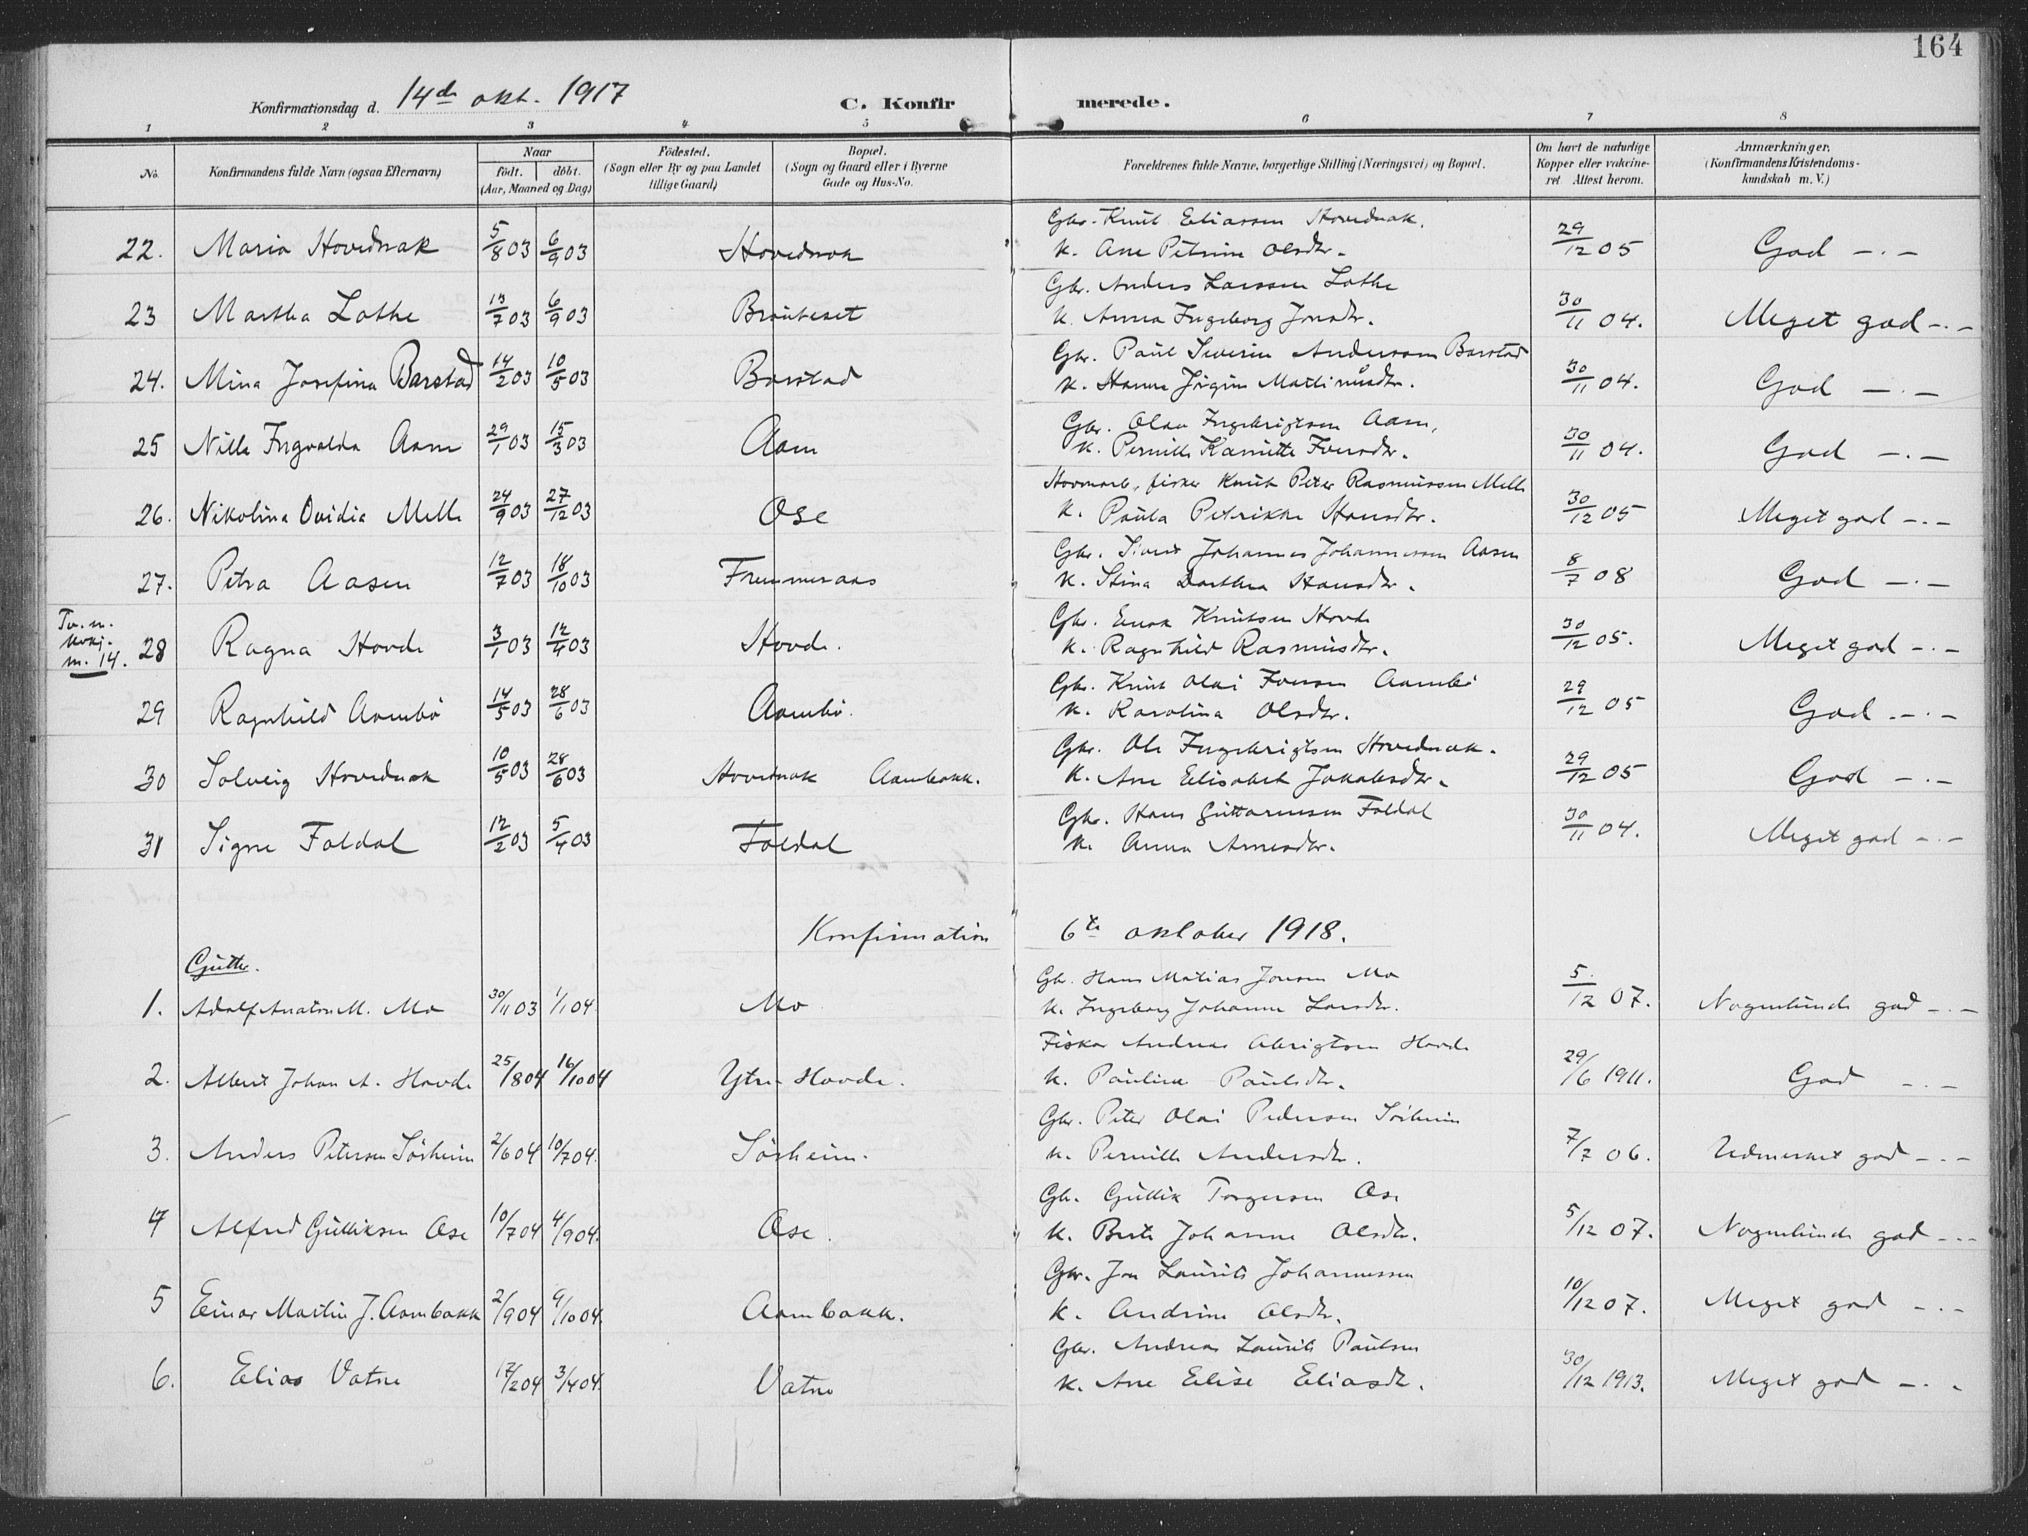 164
Konfirmationsdag d. 14de okt. 1917 C. Konfirmerede.
1 2 3 4 5 6 7 8
No. Konfirmandens fulde Navn (ogsaa Efternavn) Naar født. døbt. (Aar, Maaned og Dag) Fødested. (Sogn eller By og paa Landet tillige Gaard) Bopæl. (Sogn og Gaard eller i Byerne Gade og Hus-No. Forældrenes fulde Navne, borgerlige Stilling (Næringsvei) og Bopæl. Om havt de naturlige Kopper eller vakcineret Attest herom. Anmærkninger. (Konfirmandens Kristendomskundskab m. V.)
Gbr. Knut Eliassen Hovednak.
22. Maria Hovednak 5/8 03 6/9 03 Hovednak K. Ane Petrine Olsdtr. 29/12 05 God -.-
Gbr. Anders Larssen Lothe
23 Martha Lothe 13/7 03 6/9 03 Brauteset K. Anna Ingeborg Jonsdtr. 30/11 04. Meget god -.-
Gbr. Paul Severin Anderssen Barstad
24. Mina Josefina Barstad 14/2 03 10/5 03 Barstad K. Hanna Jørgine Martinusdtr. 30/11 04. God -.-
Gbr. Olav Ingebrigtsen Aam,
25 Nille Ingvalda Aam 29/1 03 15/3 03 Aam K. Pernille Kamitte Iversdtr. 30/11 04. God -.-
Havnearb., fisker Knut Peter Rasmussen Melle
26. Nikolina Ovidia Melle 24/9 03 27/12 03 Ose K. Paula Petrikke Hansdtr. 30/12 05 Meget god -.-
Gbr. Sivert Johannes Johannessen Aasen
27. Petra Aasen 12/7 03 18/10 03 Fremmeraas K. Stina Dorthea Hansdtr. 8/7 08 God -.-
Tv. n.
m. 14.
Gbr. Enok Knutsen Hovde
28 Ragna Hovde 3/1 03 12/4 03 Hovde. K. Ragnhild Rasmusdtr. 30/12 05. Meget god -.-
Gbr. Knut Olai Iversen Aambø
29 Ragnhild Aambø 14/5 03 28/6 03 Aambø. K. Karolina Olsdtr. 29/12 05 God -.-
Gbr. Ole Ingebrigtsen Hovednak.
30 Solveig Hovednak 10/5 03 28/6 03 Hovednak Aambakk. K. Ane Elisabet Jakobsdtr. 29/12 05 God -.-
Gbr. Hans Guttormsen Foldal
31 Signe Foldal 12/2 03 5/4 03 Foldal K. Anna Arnesdtr. 30/11 04. Meget god -.-
Konfirmation 6te oktober 1918.
Gutter.
Gbr. Hans Matias Jonsen Mo
1. Adolf Anaton M. Mo 30/11 03 1/1 04 Mo K. Ingeborg Johanne Larsdtr. 5/12 07. Nogenlunde god -.-
Fisker Andreas Abrigtsen Hovde
2. Albert Johan A. Hovde 25/8 04 16/10 04 Ytre Hovde. K. Pauline Paulsdtr. 29/6 1911. God -.-
Gbr. Peter Olai Pedersen Sørheim
3. Anders Petersen Sørheim 2/6 04 10/7 04. Sørheim. K. Pernille Andersdtr. 7/7 06. Udmerket god -.-
Gbr. Gullik Torgersen Ose
4 Alfred Gulliksen Ose 10/7 04 4/9 04. Ose. K. Berte Johanne Olsdtr. 5/12 07. Nogenlunde god -.-
Gbr. Jon Laurits Johannessen
5 Einar Martin J. Aambakk 2/9 04 9/10 04. Aambakk. K. Andrine Olsdtr. 10/12 07. Meget god -.-
Gbr. Andreas Laurits Paulsen
6. Elias Vatne 17/2 04 3/4 04. Vatne K. Ane Elise Eliasdtr. 30/12 1913. Meget god -.-